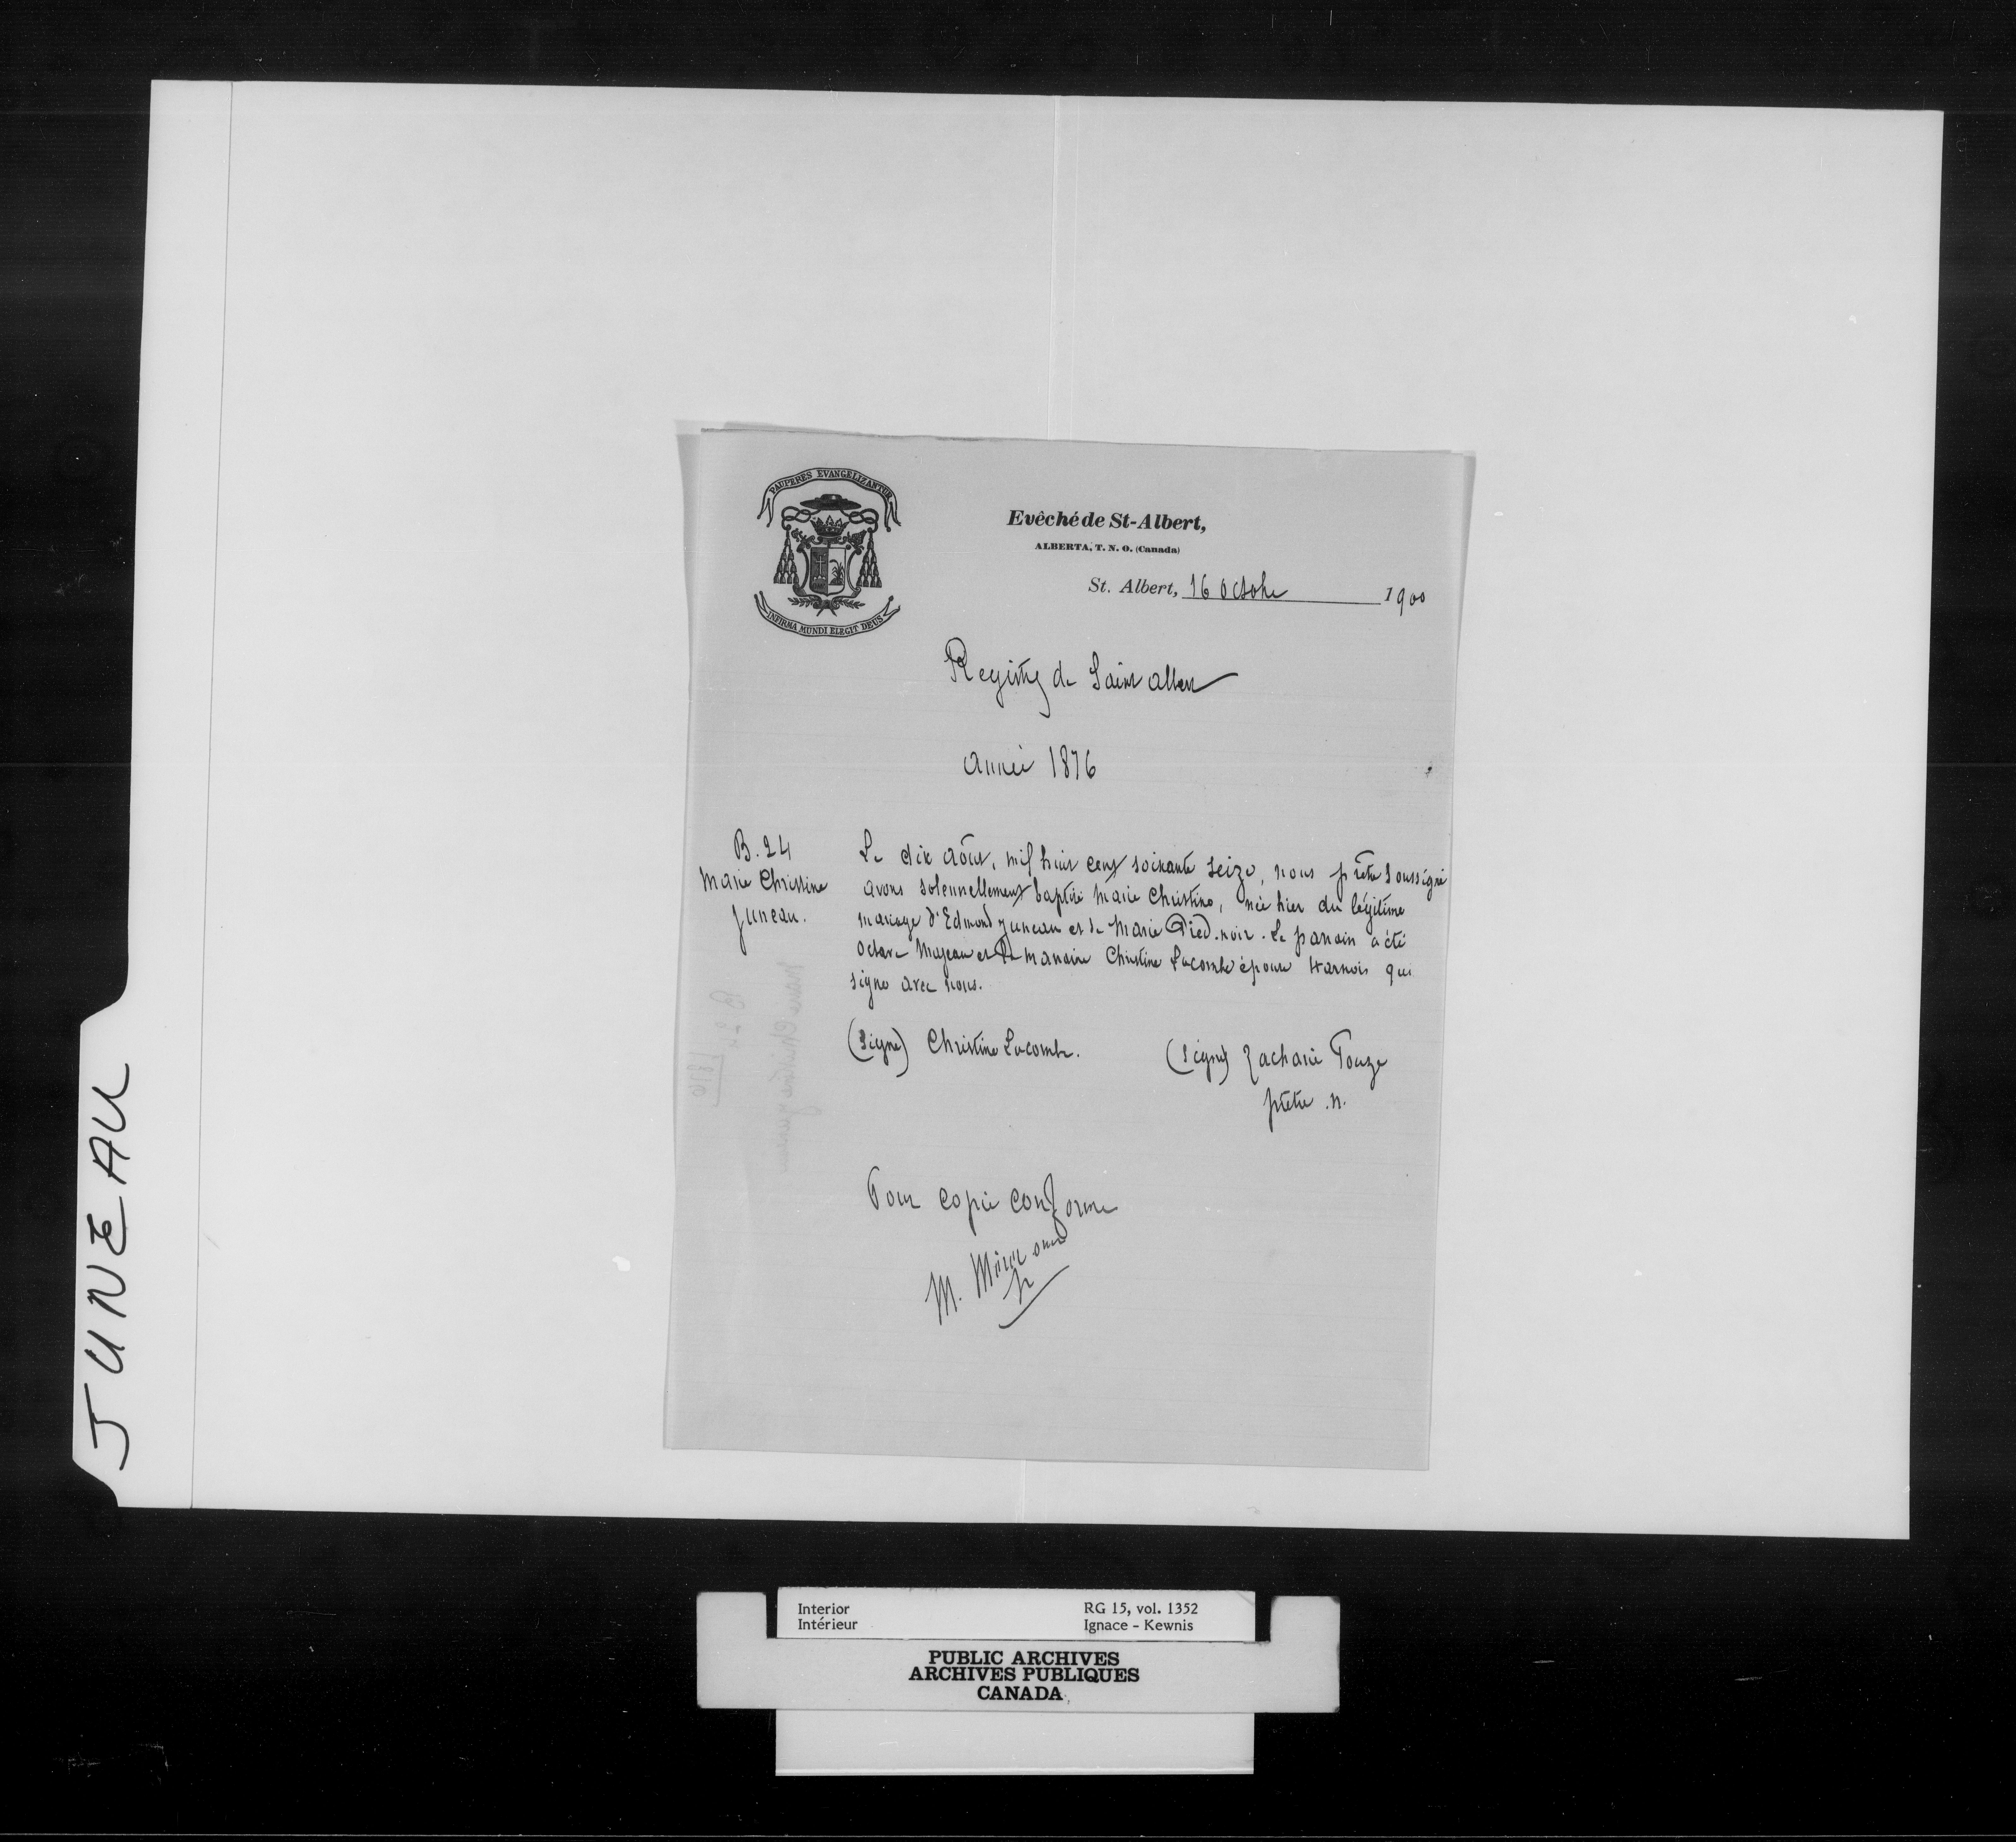 PAUPERES EVANGELIZANTUR
INFIRMA MUNDI ELEGIT DEUS
Evêché de St-Albert,
ALBERTA, T. N. O. (Canada)
St. Albert, 16 Octobre 1900
Registre de Saint Albert
Année 1876
B. 24
Marie Christine
Juneau.
Le dix Août, mil huit cent soixante seize, nous prêtre soussigné
avons solennellement baptisé Marie Christine, née hier du légitime
mariage d'Edmond Juneau et de Marie Pied-noir. Le parrain a été
Octave Majeau et la marraine Christine Lacombe épouse Harnois qui
signe avec nous.
(Signé) Christine Lacombe.
(Signé) Zacharie Touze
prêtre .n.
Pour copie conforme
M.
JUNEAU
Interior
Intérieur
RG 15, vol. 1352
Ignace - Kewnis
PUBLIC ARCHIVES
ARCHIVES PUBLIQUES
CANADA